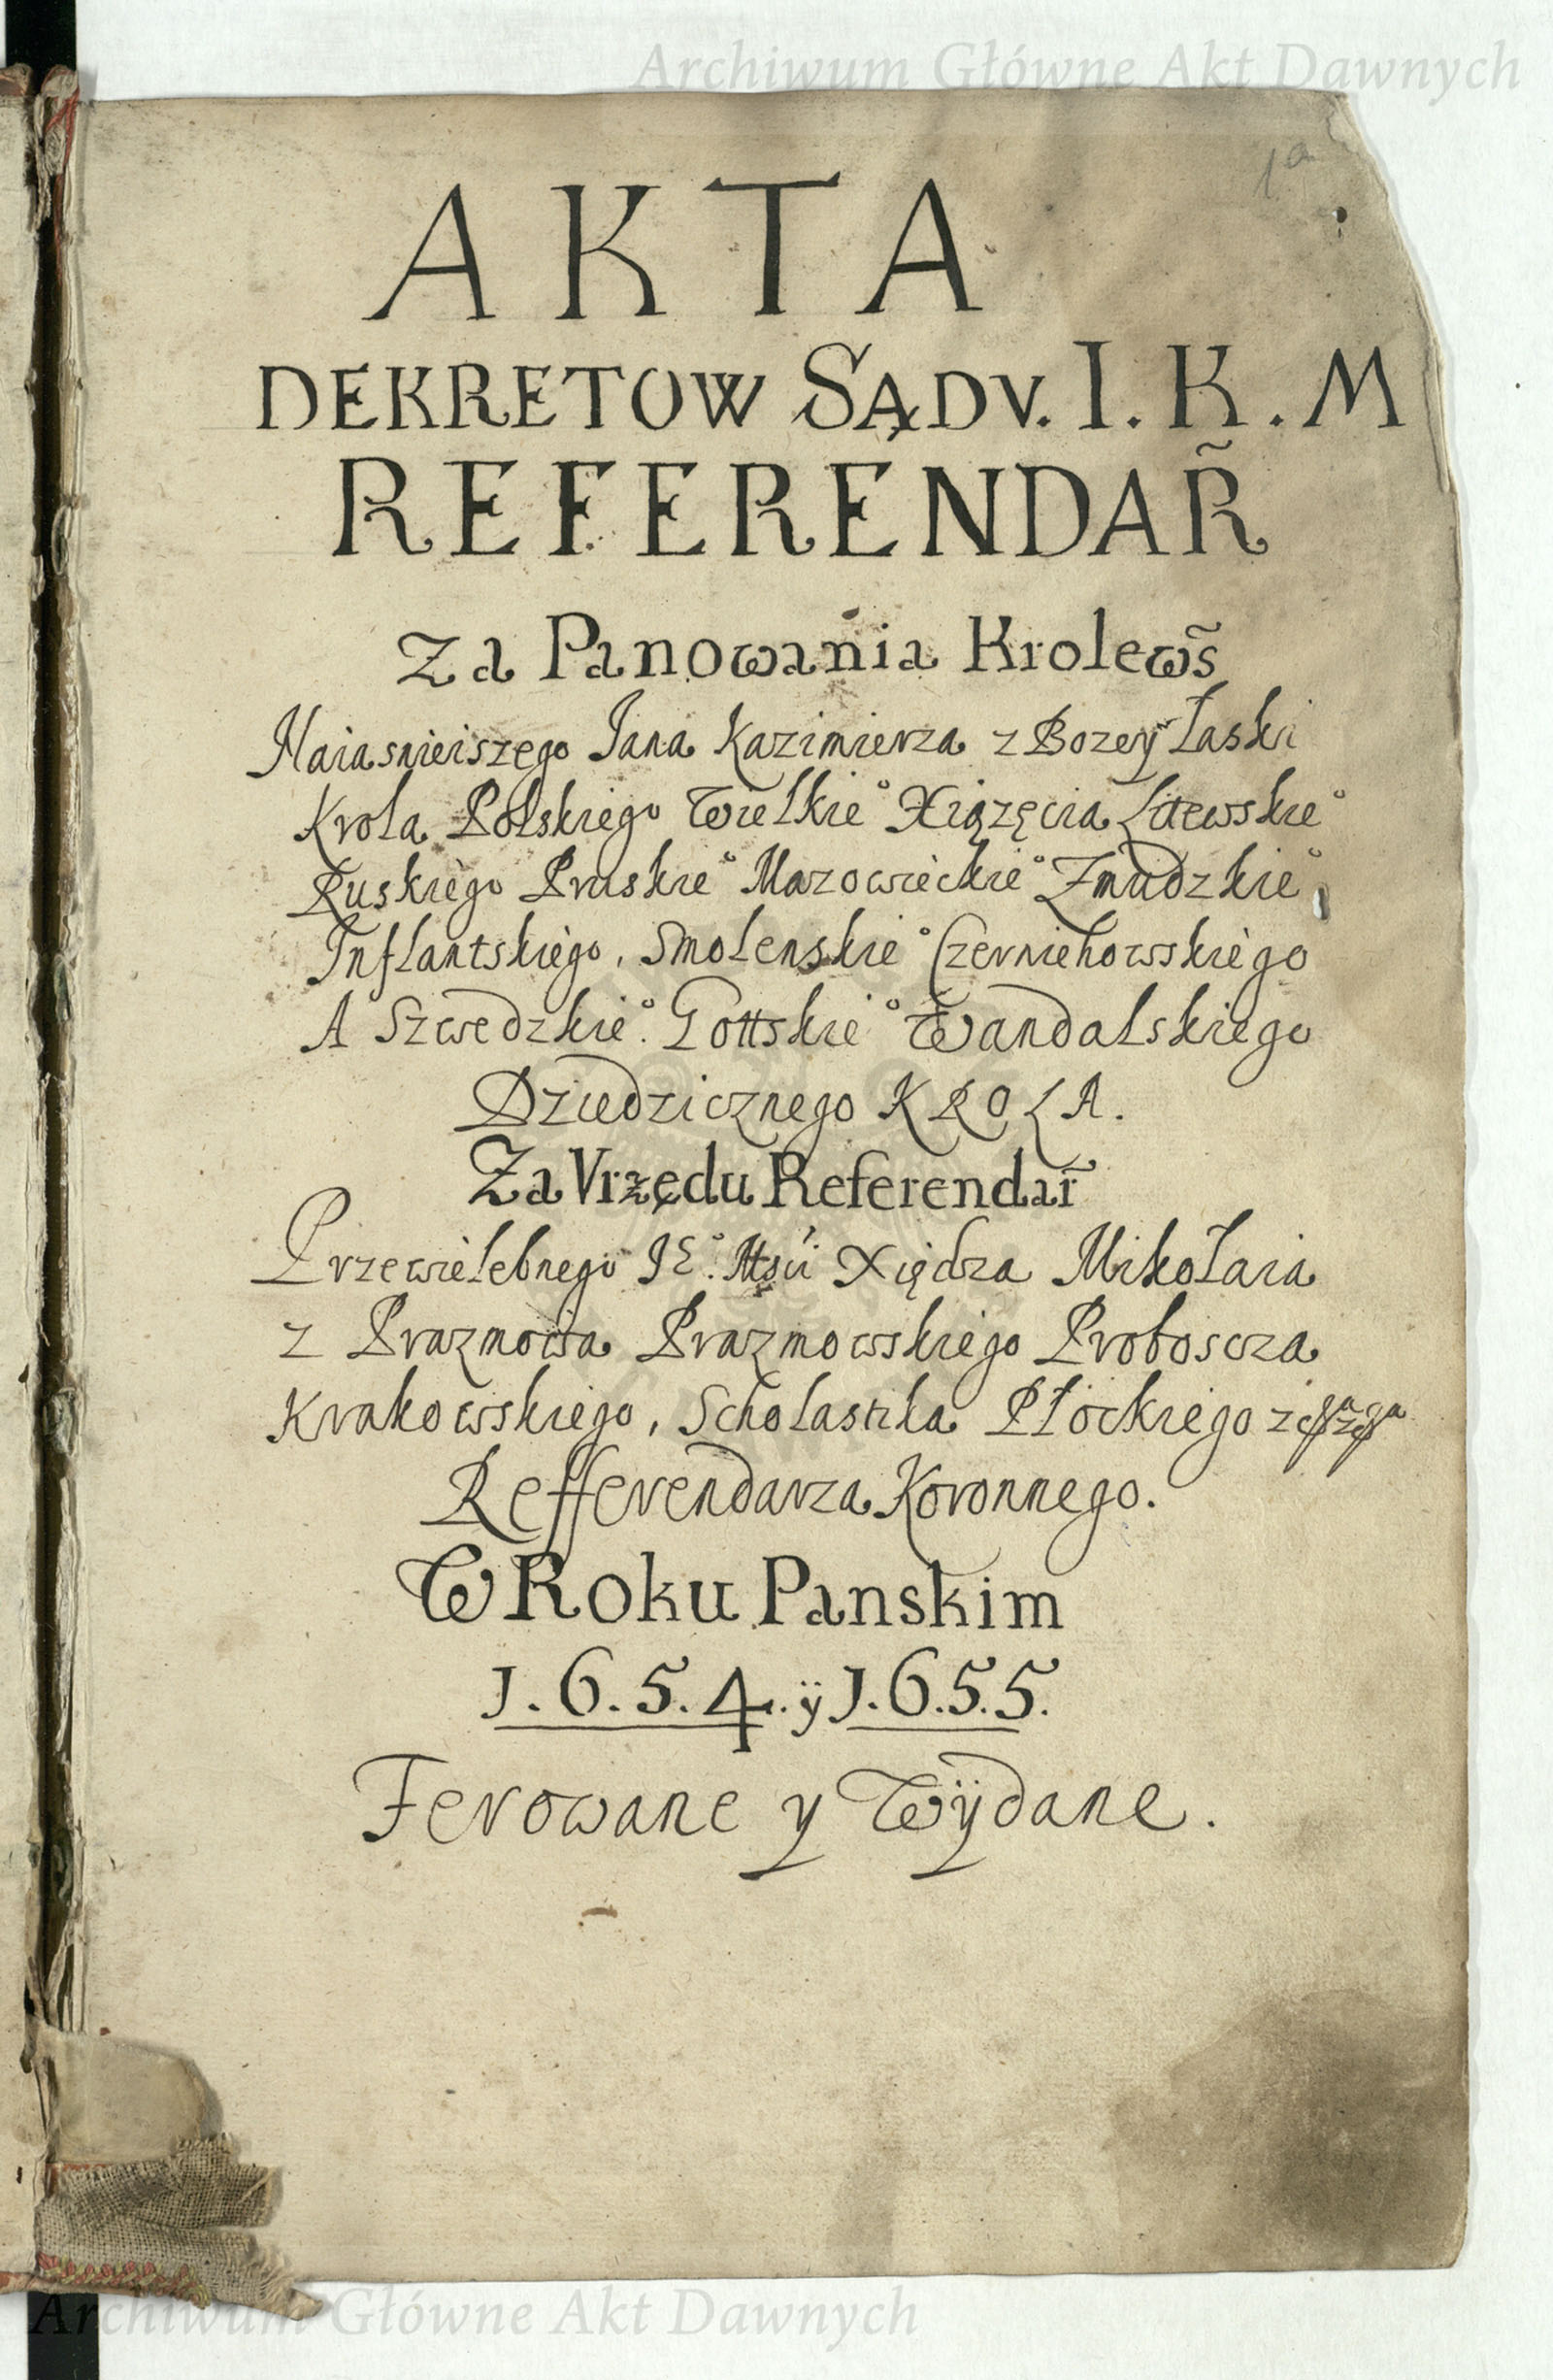 Archiwum Główne Akt Dawnych
1a
AKTA
DEKRETOW SĄDV. I. K. M
REFERENDAR̃
Za Panowania Krolews̃
Naiasnieiszego Jana Kazimierza z Bozeÿ Łaski
Krola Polskiego Wielkie° Xiązęcia Litewskie°
Ruskiego Pruskie° Mazowieckie° Zmudzkie°
Inflantskiego, Smolenskie° Czerniehowsskiego
A Szwedzkie°. Gottskie° Wandalskiego
Dziedzicznego KROLA.
Za Vrzędu Referendar̃
Przewielebnego Xiędza Mikołaia
z Prazmowa Prazmowsskiego Proboscza
Krakowskiego, Scholastika Płockiego
Refferendarza Koronnego.
W Roku Panskim
1.6.5.4. ÿ 1.6.5.5.
Ferowane y Wÿdane.
Archiwum Główne Akt Dawnych